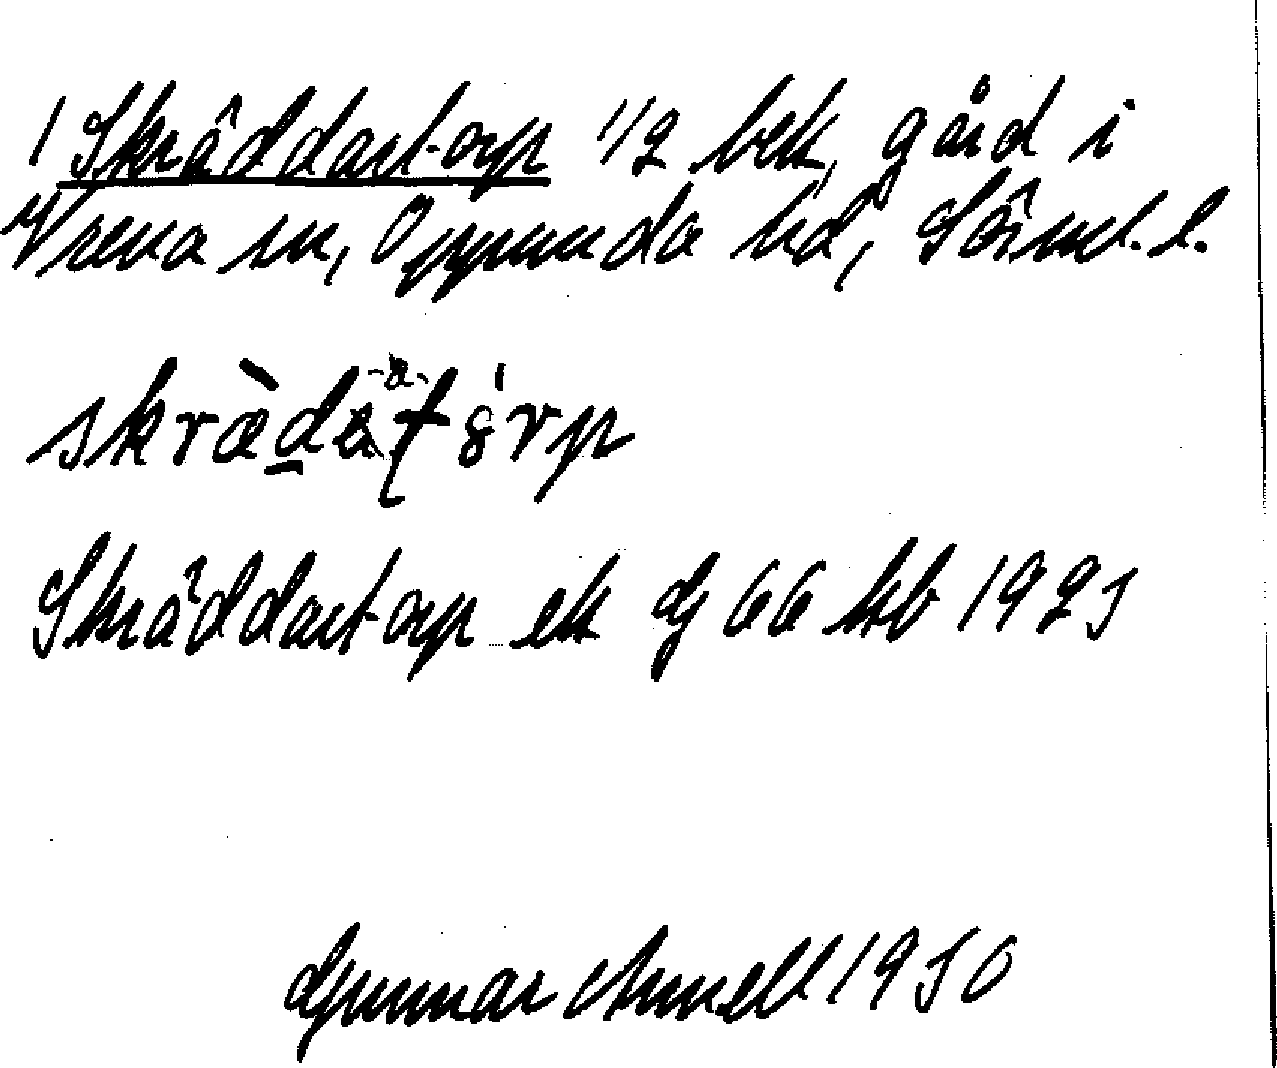 1 Skräddartorp 1/2 bek. gård i
Vrena sn, Oppunda hd, Sörml. l.
skrædatørp
Skräddartorp ek bl 66 kb 1925
Gunnar Arnell 1950